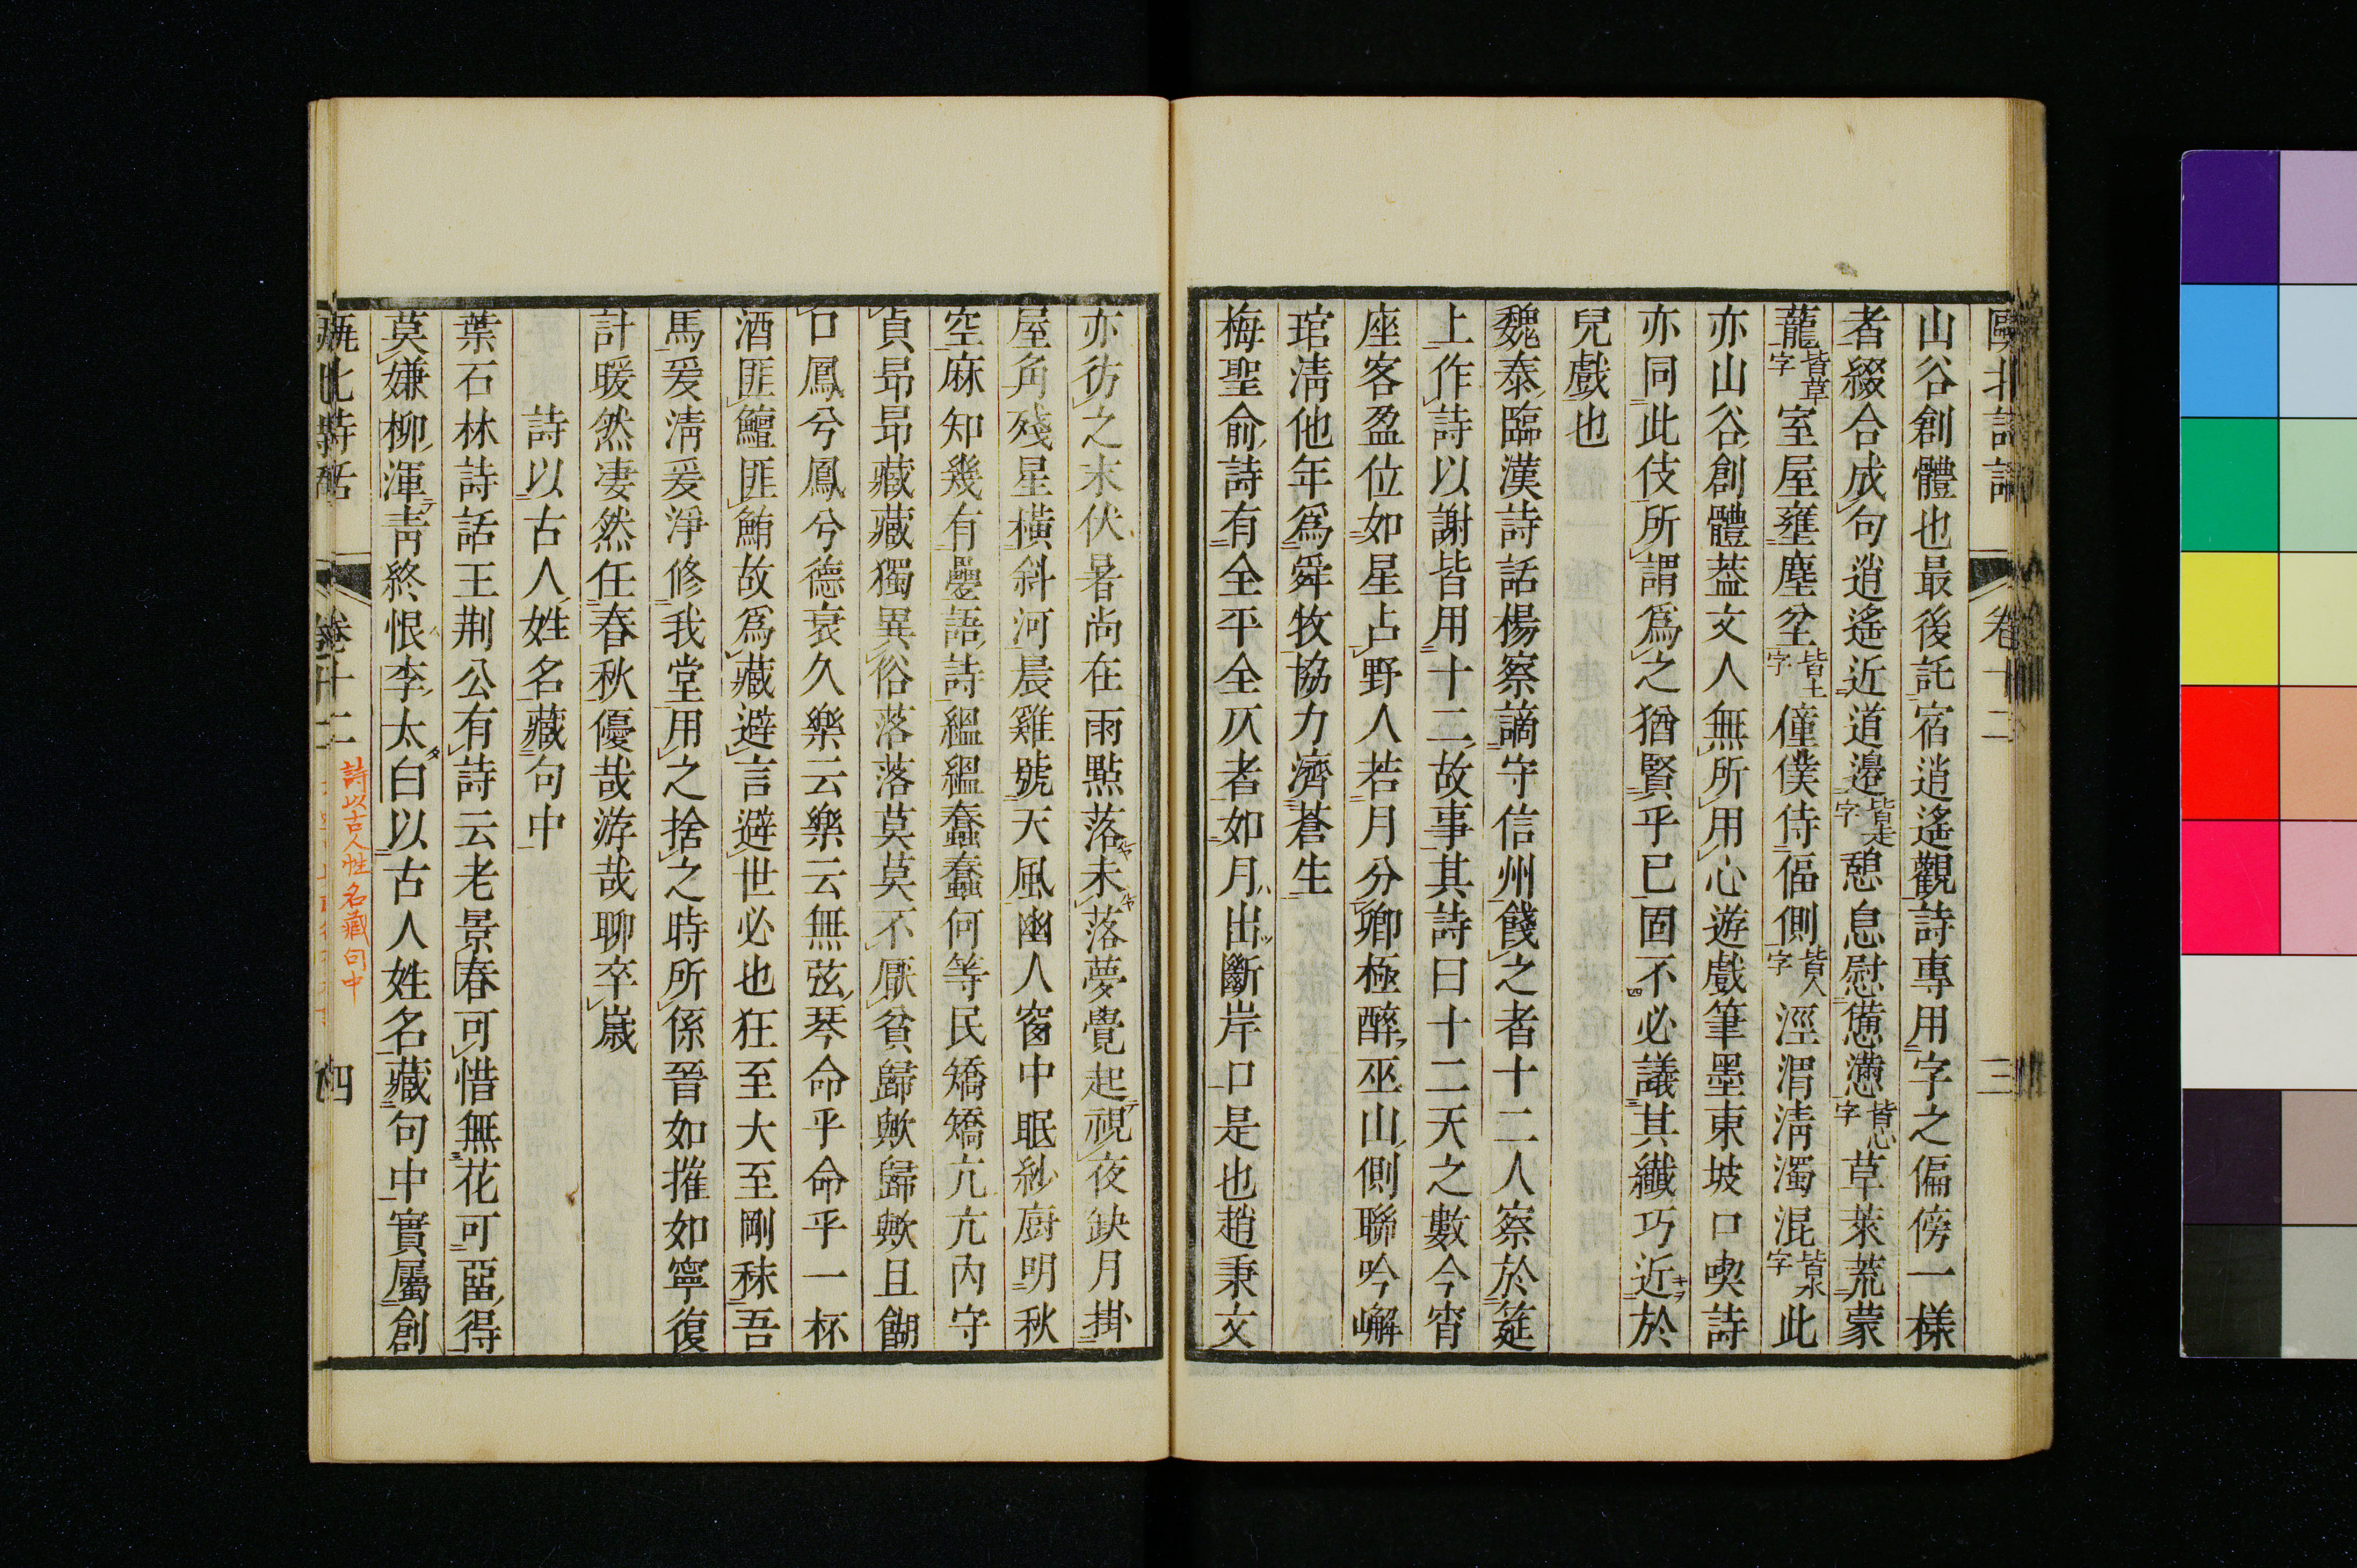 甌北詩話 卷十二 三
山谷創體也最後託宿逍遙觀詩專用字之偏傍一樣
者綴合成句逍遙近道邊皆走字憩息慰憊懣皆心字草萊荒蒙
蘢皆草字室屋壅塵坌皆土字僮僕侍偪側皆人字涇渭清濁混皆水字此
亦山谷創體葢文人無所用心遊戲筆墨東坡口喫詩
亦同此伎所謂爲之猶賢乎已固不必議其纖巧近於
兒戲也
魏泰臨漢詩話楊察謫守信州餞之者十二人察於筵
上作詩以謝皆用十二故事其詩曰十二天之數今宵
座客盈位如星占野人若月分卿極醉巫山側聯吟嶰
琯清他年爲舜牧協力濟蒼生
梅聖俞詩有全平全仄者如月出斷岸口是也趙秉文
亦彷之末伏暑尚在雨點落未落夢覺起視夜缺月掛
屋角殘星橫斜河晨雞號天風幽人窗中眠紗厨明秋
空麻知幾有疊語詩縕縕蠢蠢何等民矯矯亢亢內守
貞昂昂藏藏獨異俗落落莫莫不厭貧歸歟歸歟且餬
口鳳兮鳳兮德衰久樂云樂云無弦琴命乎命乎一杯
酒匪鱣匪鮪故爲藏避言避世必也狂至大至剛秣吾
馬爰清爰淨修我堂用之捨之時所係晉如摧如寧復
計暖然凄然任春秋優哉游哉聊卒嵗
詩以古人姓名藏句中
葉石林詩話王荆公有詩云老景春可惜無花可畱得
莫嫌柳渾靑終恨李太白以古人姓名藏句中實屬創
甌北詩話 卷十二 四
詩以古人性名藏句中